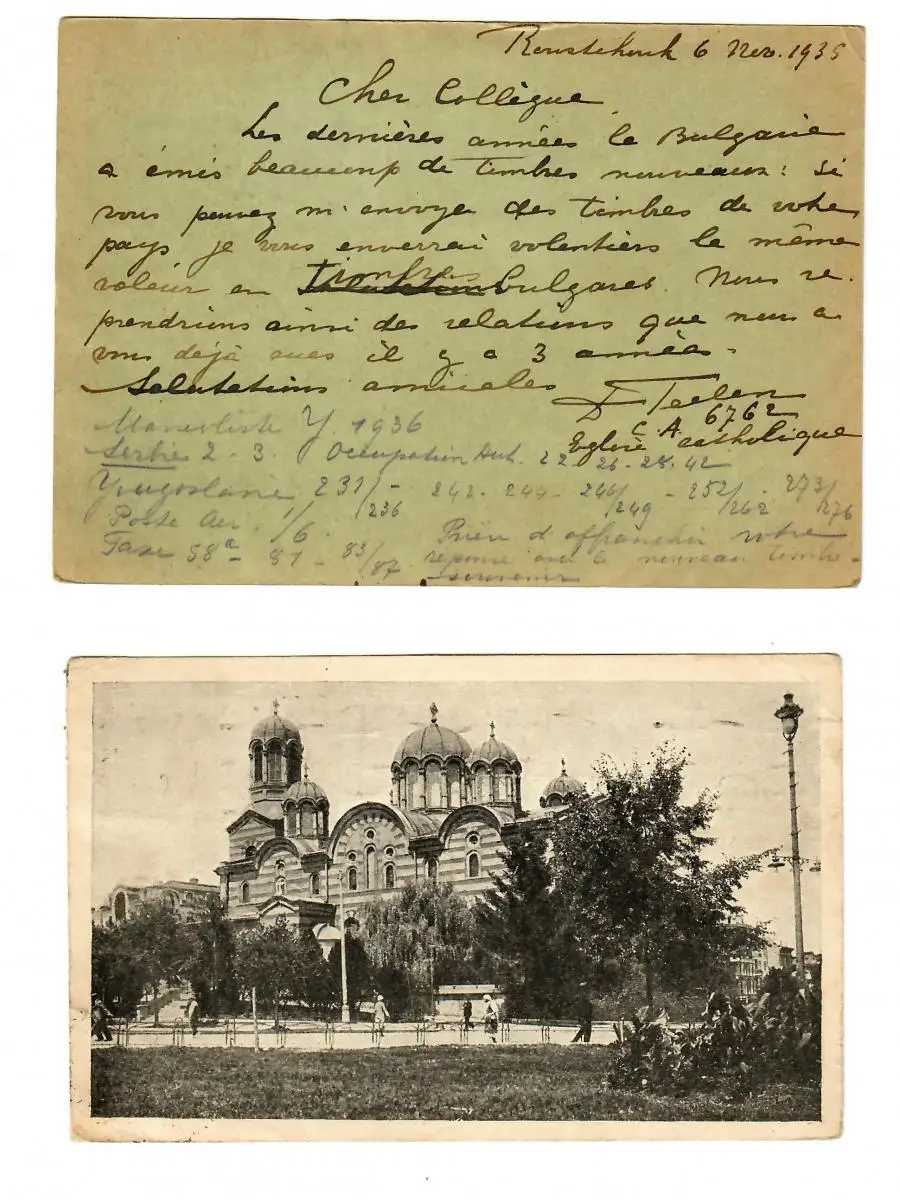 Roustchouk 6 Nov. 1935
Cher Collègue
Les dernières années la Bulgarie
a émis beaucoup de timbres nouveaux : si
vous pouvez m'envoyer des timbres de votre
pays je vous enverrai volontiers la même
valeur en timbres bulgares. Nous re-
prendrions ainsi des relations que nous a-
vons déjà eues il y a 3 années.
Salutations amicales
C.A. 6762
Eglise catholique
Mancoliste Y. 1936
Serbie 2 - 3. Occupation 22 - 26 - 28 - 42
Yougoslavie 231/236 - 242 - 244 - 246/249 - 252/262 - 273/276
Poste Aer. 1/6. Prière d'affranchir votre
Taxe 58a - 81 - 83/87. réponse avec le nouveau timbre-
souvenir